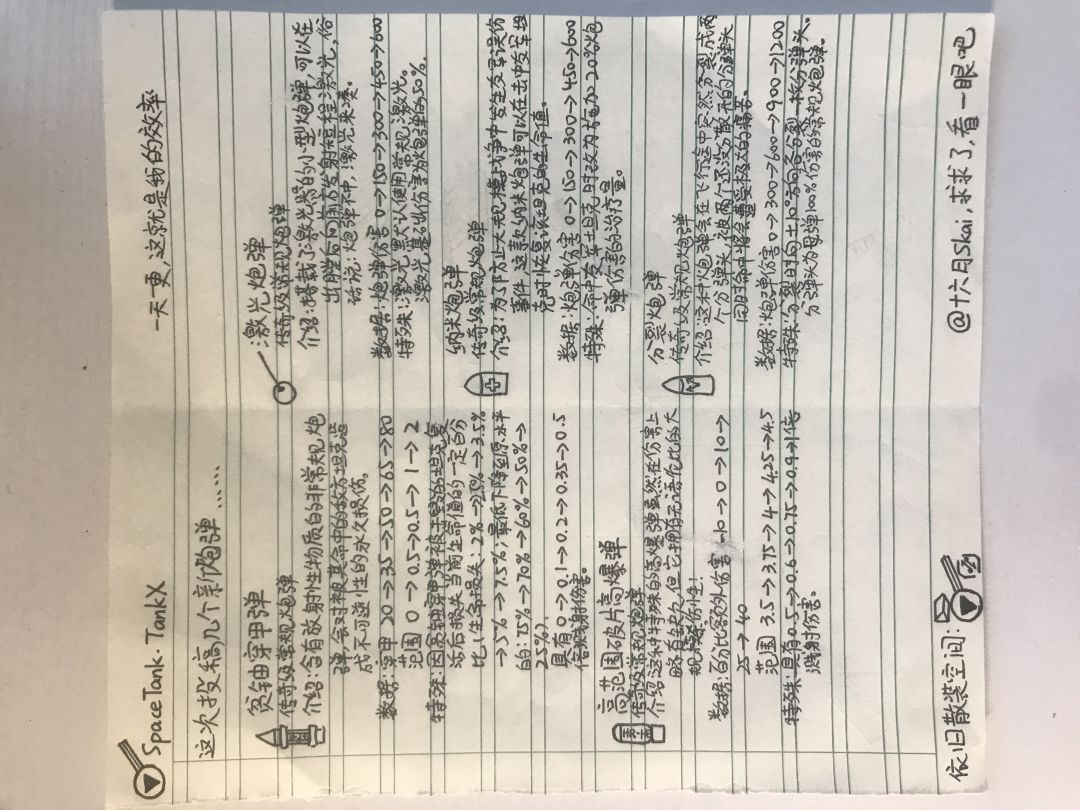 SpaceTank·TankX
一天一更,这就是我的效率
这次投稿几个新炮弹……
贫铀穿甲弹
传奇级常规炮弹
介绍:含有放射性物质的非常规炮
弹,会对被其命中的敌方坦克造
成不可逆性的永久损伤。
数据:穿甲 20→35→50→65→80
范围 0→0.5→0.5→1→2
特殊:因贫铀穿甲弹被击毁的坦克复
活后损失当前生命值的一定百分
比(生命损失:2%→2.5%→3.5%
→5%→7.5%;最低下降至原水平
的:75%→70%→60%→50%→
25%)
具有0→0.1→0.2→0.35→0.5
倍溅射伤害。
高范围破片高爆弹
传奇级常规炮弹
介绍:这种特殊的高爆弹虽然在伤害上
略有缺欠,但它拥有无语伦比的大
规模杀伤性!
数据:百分比额外伤害 -10→0→10→
25→40
范围 3.5→3.75→4→4.25→4.5
特殊:具有0.5→0.6→0.75→0.9→1倍
溅射伤害。
激光炮弹
传奇级常规炮弹
介绍:搭载了激光器的小型炮弹,可以在
出膛后向前方发射短程激光,俗
话说:炮弹不中,激光来凑。
数据:炮弹伤害 0→150→300→450→600
特殊:激光里默认使用常规激光。
激光基础伤害为炮弹的50%.
纳米炮弹
传奇级常规炮弹
介绍:为了防止大规模战争中发生友军误伤
事件,这款纳米炮弹可以在击中友军坦
克时恢复该坦克的生命值。
数据:炮弹伤害 0→150→300→450→600
特殊:命中友军坦克时改为施加20%炮
弹伤害的治疗量。
分裂炮弹
传奇级常规炮弹
介绍:这种炮弹会在飞行途中突然分裂成两
个分弹头,被两个还没分散开的分弹头
同时命中将会遭受极大的痛苦。
数据:炮弹伤害0→300→600→900→1200
特殊:分裂时向±10°方向各分裂一枚分弹头.
分弹头为母弹100%伤害的常规炮弹.
依旧散装空间:
@十六月Skai,求求了,看一眼吧